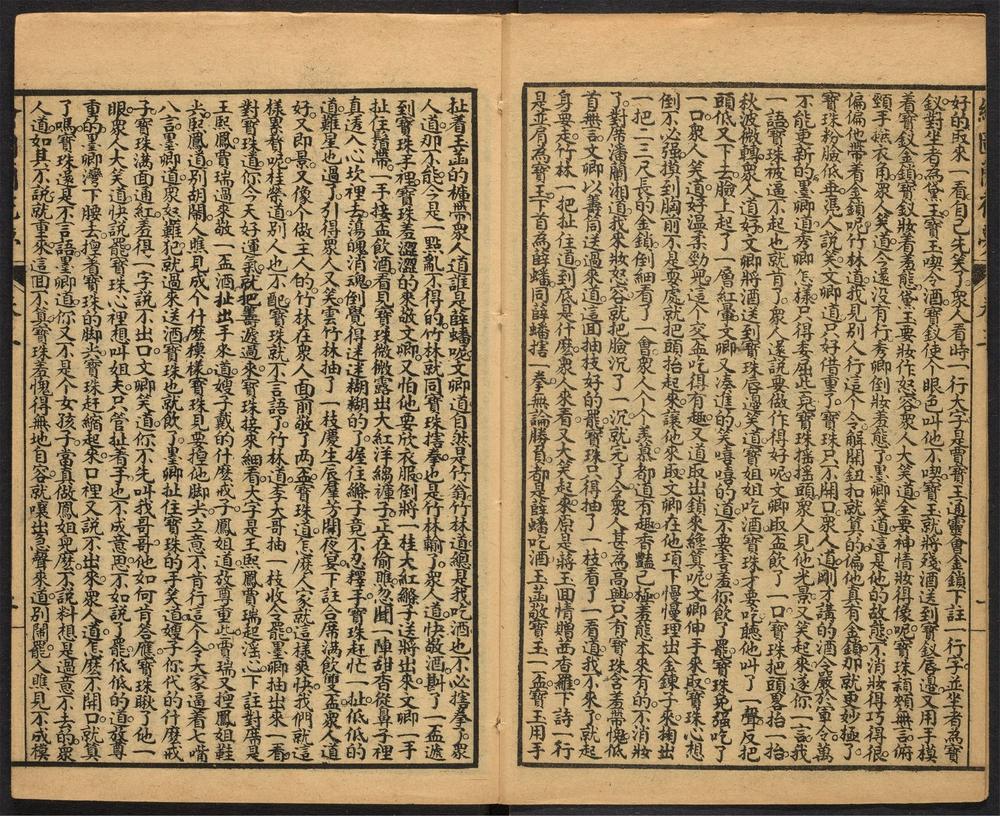 好的取來一看自己先笑了眾人看時一行大字是賈寶玉通靈會金鎖下註一行字並坐者為寶
釵對坐者為黛玉寶玉喫令酒寶釵使個眼色叫他不喫寶玉就將殘酒送到寶釵唇邊又用手模
着寶釵金鎖寶釵妝着羞態黛玉要妝作怒容眾人大笑道全要神情妝得像呢寶珠頳頰無言俯
頸手撚衣用眾人笑道令還沒有行秀卿倒妝羞態了墨卿笑道這是他的故態不消妝得巧得很
偏偏他帶着金鎖呢竹林道我見別人行這个令解開鈕扣就算的偏他真有金鎖那就更妙極了
寶珠粉臉低垂混人說笑文卿道只好借重了寶珠只不開口眾人道剛才講的酒令嚴於軍令萬
不能更新的墨卿道秀卿怎樣只得委屈些寶珠搖搖頭眾人見他光景又笑起來遂你一言我
一語寶珠被逼不起也就首肯了眾人還說要做作得好呢文卿取盃飲了一口寶珠把頭畧抬一抬
秋波微轉眾人道好文卿將酒送到寶珠唇邊笑道寶姐姐吃酒寶珠才要吃聽他叫了一聲反把
頭低又下去臉上起了一層紅暈文卿又湊進的笑嘻嘻的道不要害羞你飲了罷寶珠免强吃了
一口眾人笑道好溫柔勁兒這个交盃吃得有趣又道取出鎖來纔算呢文卿伸手來取寶珠心想
倒不必强摸到胸前不是耍處就把頭抬起來讓他來取文卿在他項下慢慢理出金鍊子來掏出
一把二三尺長的金鎖倒細看了一會眾人个个羡慕都道有趣香豔已極羞態本來有的不消妝
了對席潘蘭湘道我來妝怒容就把臉沉了一沉就完了令眾人甚為高興只有寶珠含羞帶愧低
首無言文卿以籌筒送過來道這面抽枝好的罷寶珠只得抽了一枝看了一看道我不來了就起
身要走竹林一把扯住道到底是什麽眾人來看又大笑起來原是蔣玉函情贈茜香羅下詩一行
是並肩為寶玉下首為薛蟠同薛蟠搳一拳無論勝負都是薛蟠吃酒玉菡敬寶玉一盃寶玉用手
扯着玉菡的褲帶眾人道誰是薛蟠呢文卿道自然是竹翁竹林道總是我吃酒也不必搳拳了眾
人道那不能令是一點亂不得的竹林就同寶珠搳拳也是竹林輸了眾人道快敬酒斟了一盃遞
到寶珠手裡寶珠羞澀澀的來敬文卿又怕他要欣衣服倒將一桂大紅縧子送將出來文卿一手
扯住縧帶一手接盃飲酒看見寶珠微微露出大紅洋縐褲子正在偷瞧忽聞一陣甜香從鼻子裡
真透入心坎裡去蕩魄消魂倒覺得迷迷糊糊的了握住縧子竟不忍釋手寶珠赶忙一扯低低的
道難星也過了引得眾人又笑雲竹林抽了一枝慶生辰羣芳開夜宴下註合席滿飲雙盃眾人道
好又即景又像个做主人的竹林在眾人面前敬了兩盃寶珠道怎麽人家就這樣爽快我們就這
樣累贅呢桂榮道別人也不配寶珠就不言語了竹林道李大哥抽一枝收令罷墨卿抽出來一看
對寶珠道你今天好運氣就把籌遞過來寶珠接來細看大字是王熙鳳賈瑞起淫心下註對席是
王熙鳳賈瑞過來敬一盃酒扯出手來道嫂子戴的什麽戒子鳳姐道放尊重些賈瑞又揑鳳姐鞋
尖熙鳳道別胡鬧人瞧見成个什麽模樣寶珠見要揑他脚尖立意不肯行這个令大家逼着七嘴
八言墨卿道眾怒難犯就過來送酒寶珠也就飲了墨卿扯住寶珠的手笑道嫂子你代的什麽戒
子寶珠滿面通紅羞得一字說不出口文卿笑道你不先叫我哥哥他如何肯答應寶珠瞅了他一
眼眾人大笑道快說罷寶珠心裡想叫姐夫只管扯着手也不成意思不如說了罷低低的道放尊
重的墨卿灣下腰去揑着寶珠的脚尖寶珠赶縮起來口裡又說不出來眾人道怎麽不開口就算
了嗎寶珠還是不言語墨卿道你又不是个女孩子當真做鳳姐兒麽不說料想是過意不去的眾
人道如其不說就重來這回不算寶珠羞愧得無地自容就嚷出急聲來道別鬧罷人瞧見不成模